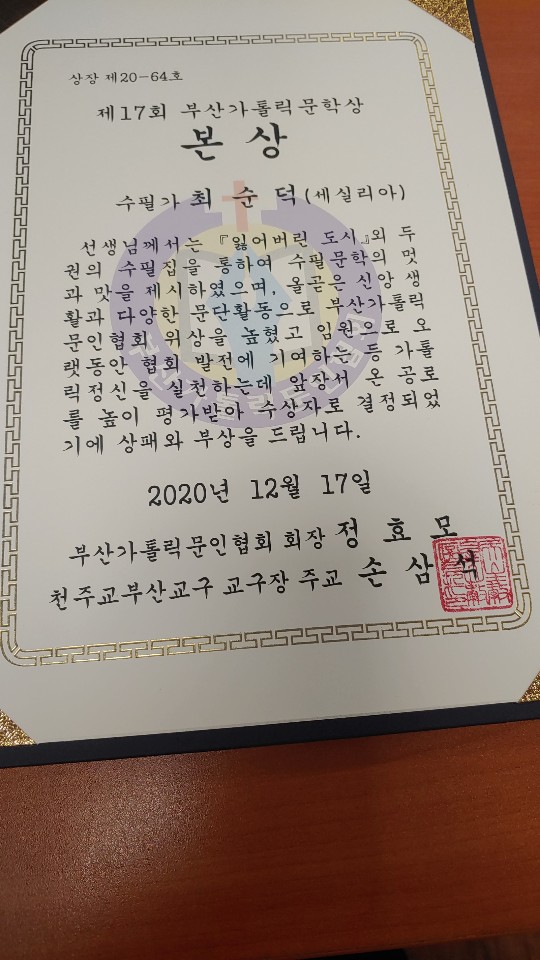 상장 제20-64호
제17회 부산가톨릭문학상
본 상
수필가 최 순 덕 (세실리아)
선생님께서는 『잃어버린 도시』외 두
권의 수필집을 통하여 수필문학의 멋
과 맛을 제시하였으며, 올곧은 신앙 생
활과 다양한 문단활동으로 부산가톨릭
문인협회 위상을 높혔고 임원으로 오
랫동안 협회 발전에 기여하는 등 가톨
릭정신을 실천하는데 앞장서 온 공로
를 높이 평가받아 수상자로 결정되었
기에 상패와 부상을 드립니다.
2020년 12월 17일
부산가톨릭문인협회 회장 정 효 모
천주교부산교구 교구장 주교 손 삼 석
부산가톨릭문인협회